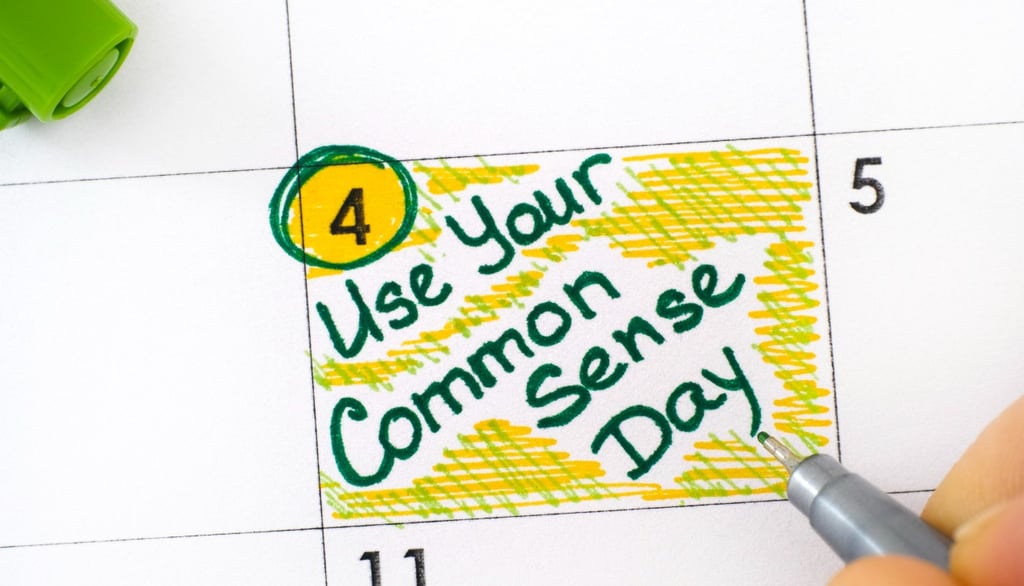 4
5
Use Your
Common
Sense
Day
11